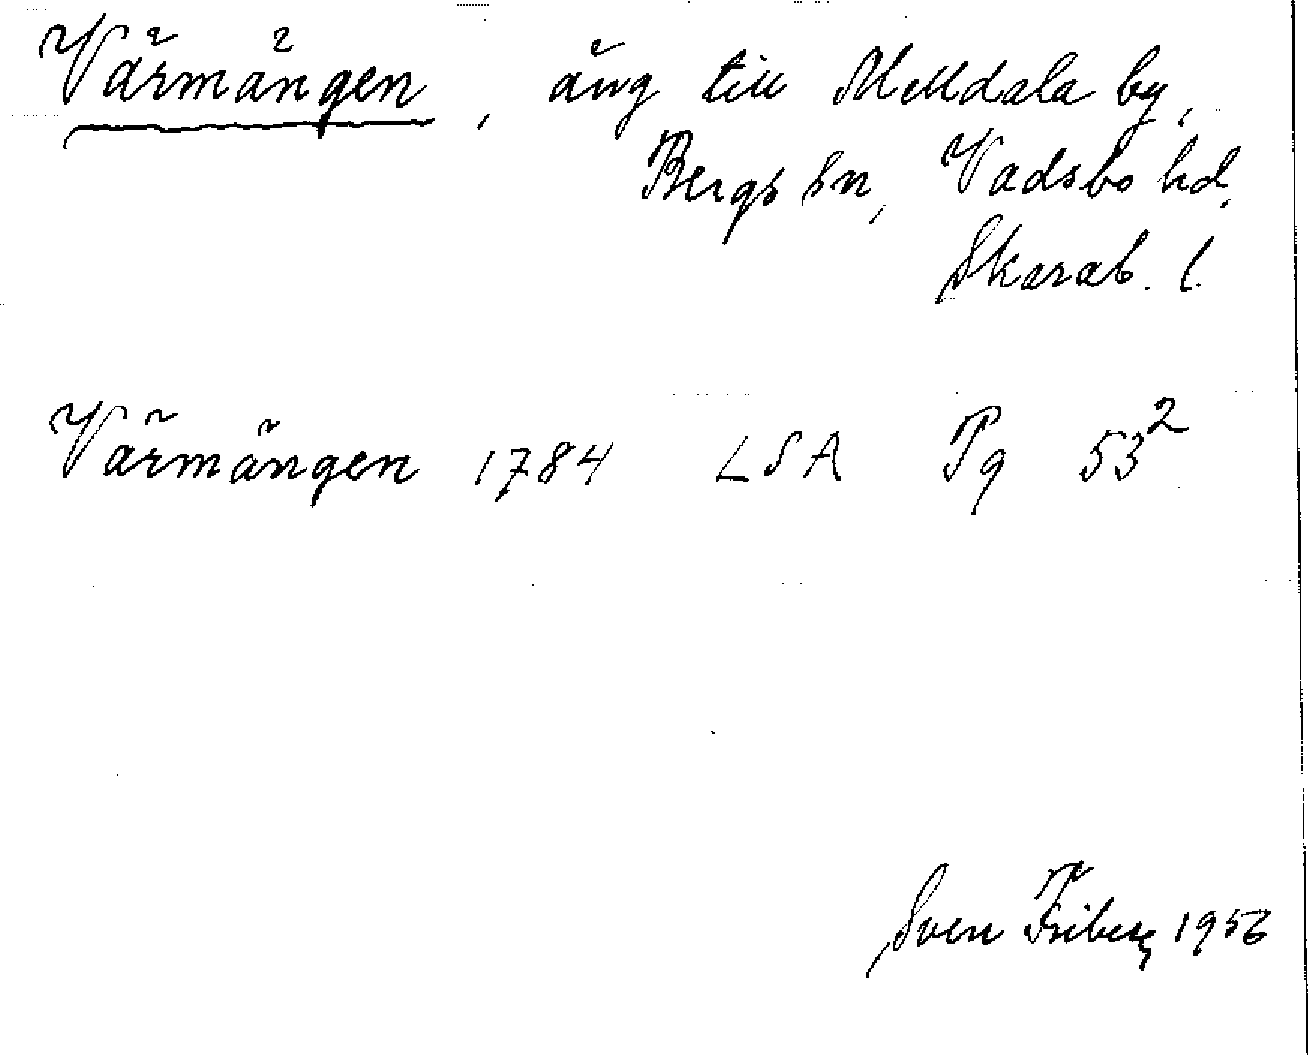 Värmängen, äng till Melldala by,
Bergs sn, Vadsbo hd,
Skarab. l.
Värmängen 1784 LSA Pg 53²
Sven Friberg 1956